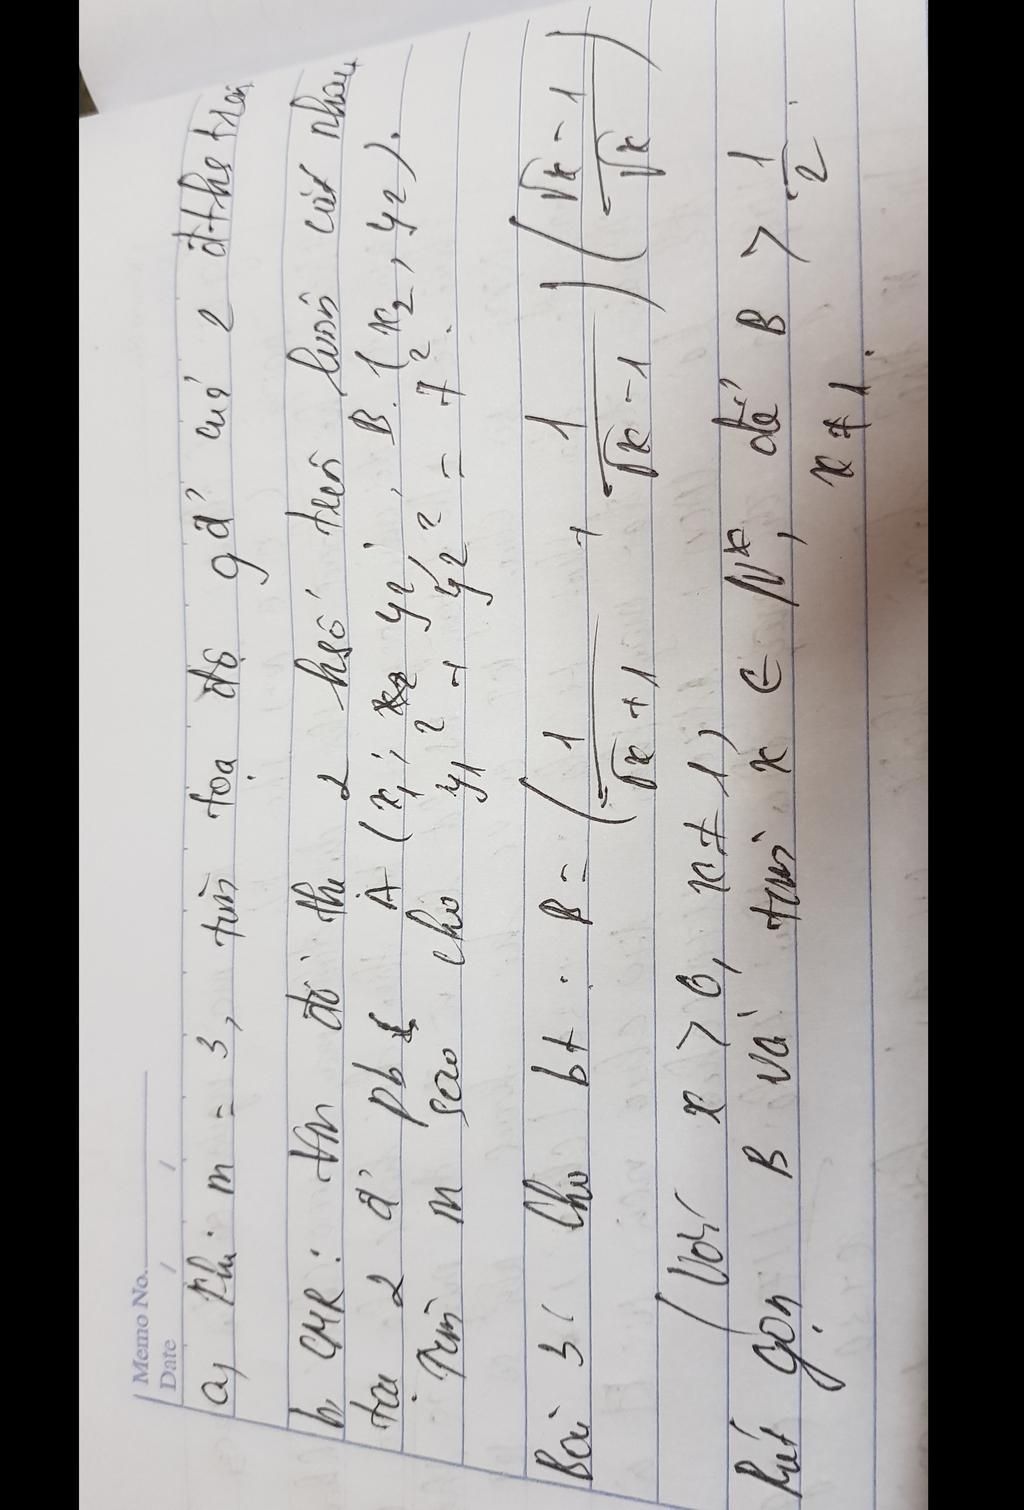 Memo No.
Date / /
a, Khi m = 3, tìm tọa độ gđ² của 2 đths trên
b, CMR: Với đồ thị 2 hsố trên luôn cắt nhau
tại 2 đ² pb A (x₁; y₁), B (x₂, y₂).
Tìm m sao cho y₁² + y₂² = 7².
Bài 3: Cho bt: B = (1/(√x + 1) + 1/(√x − 1)) ((√x − 1)/√x)
(Với x > 0, x ≠ 1)
Rút gọn B và tìm x ∈ N*, để B > 1/2
x ≠ 1.